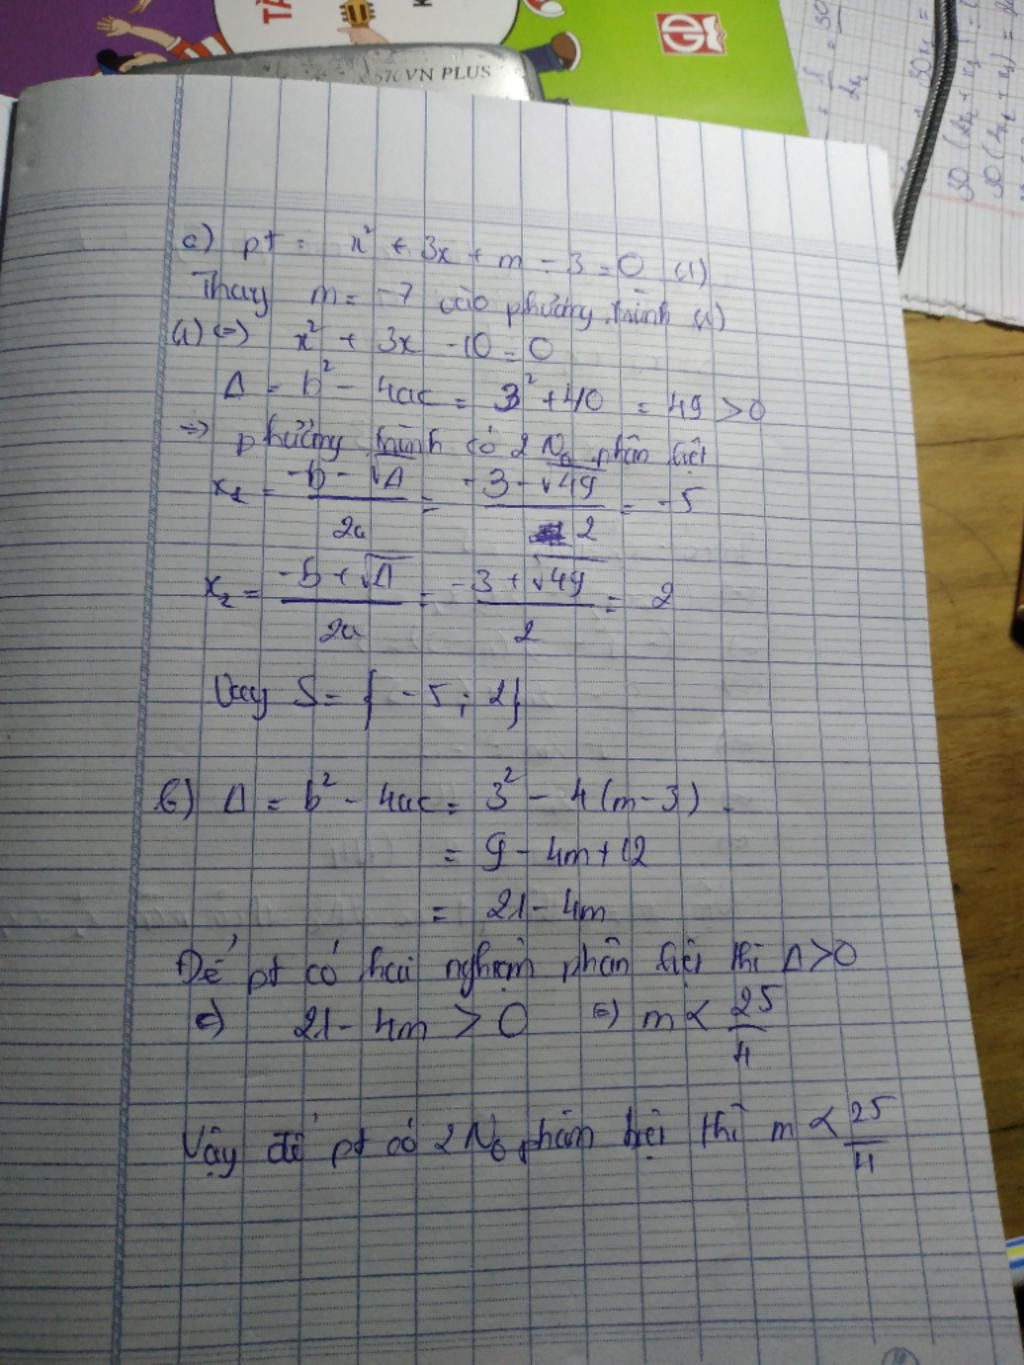 TÀ
K
570VN PLUS
GD
a) pt: x² + 3x + m - 3 = 0 (1)
Thay m = -7 vào phương trình (1)
(1) (=) x² + 3x - 10 = 0
Δ = b² - 4ac = 3² + 40 = 49 > 0
=> phương trình có 2 No phân biệt
x₁ = (-b - √Δ)/2a = (-3 - √49)/2 = -5
x₂ = (-b + √Δ)/2a = (-3 + √49)/2 = 2
Vay S = { -5 ; 2}
b) Δ = b² - 4ac = 3² - 4(m - 3)
= 9 - 4m + 12
= 21 - 4m
Để pt có hai nghiệm phân biệt thì Δ > 0
(=) 21 - 4m > 0 (=) m < 25/4
Vậy để pt có 2 No phân biệt thì m < 25/4